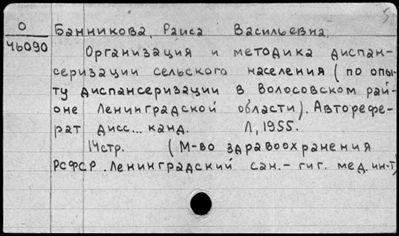 О Банникова, Раиса Васильевна
46090
Организация и методика диспан-
серизации сельского населения (по опы-
ту диспансеризации в Волосовском рай-
оне Ленинградской области). Авторефе-
рат дисс... канд. Л, 1955.
14стр. (М-во здравоохранения
РСФСР. Ленинградский сан.- гиг. мед. ин-т)